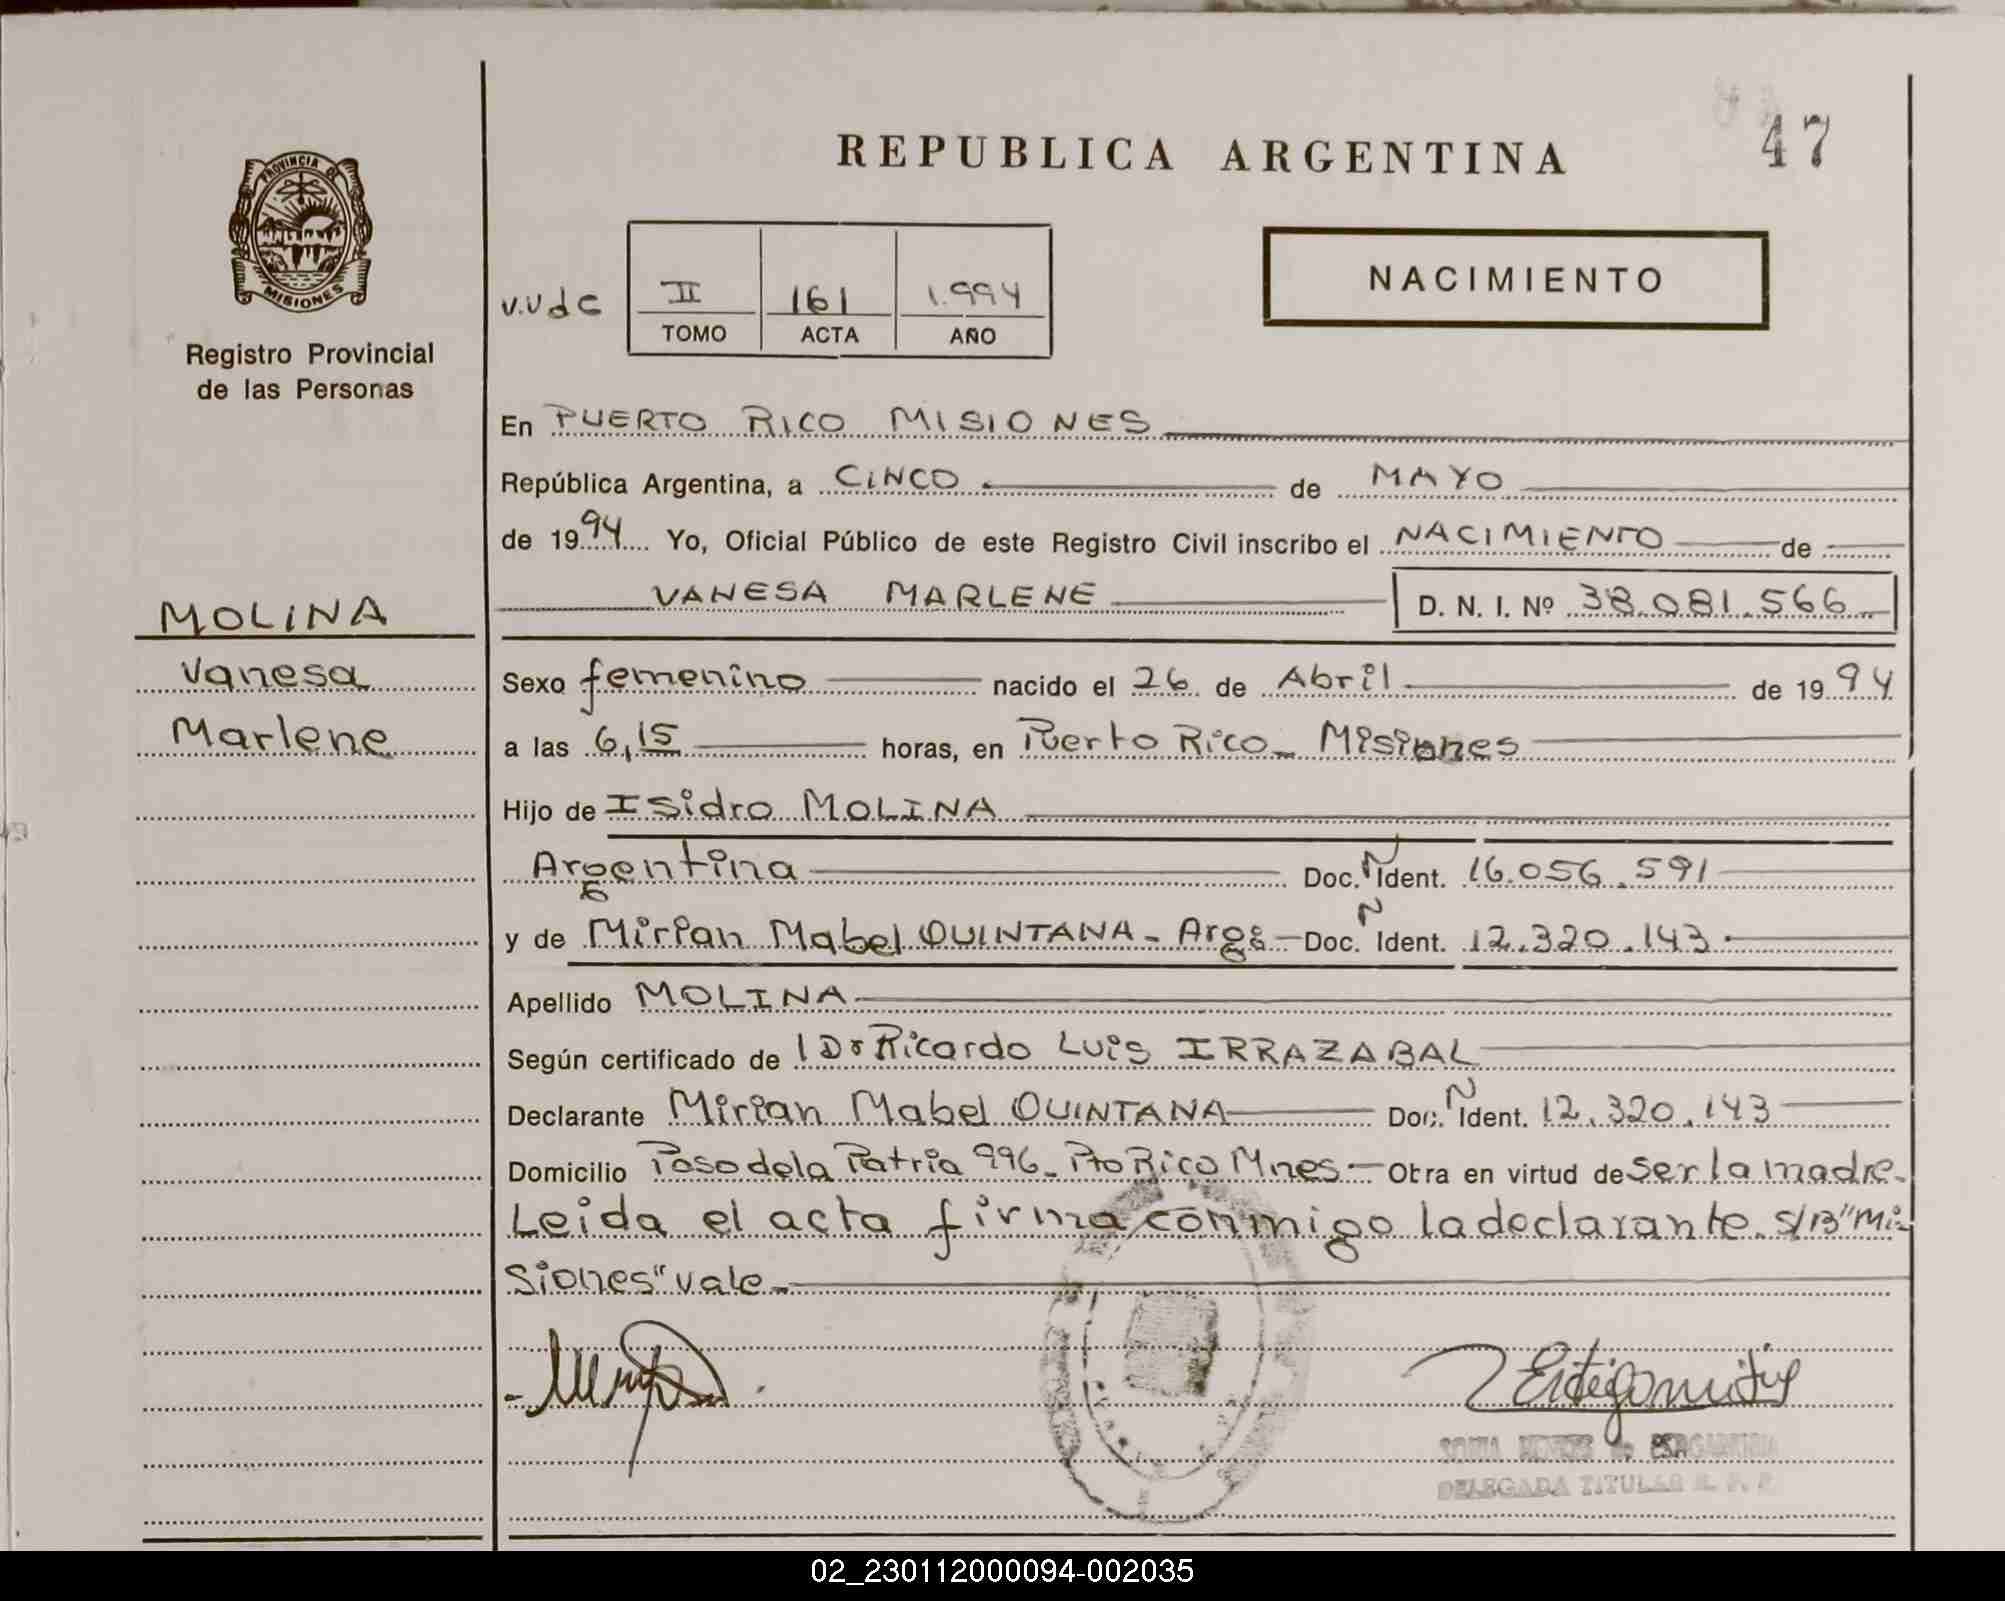 REPUBLICA ARGENTINA
47
PROVINCIA DE
MISIONES
Registro Provincial
de las Personas
v.v.d c
II 161 1.994
TOMO ACTA AÑO
NACIMIENTO
En PUERTO RICO MISIONES
República Argentina, a CINCO de MAYO
de 1994 Yo, Oficial Público de este Registro Civil inscribo el NACIMIENTO de
VANESA MARLENE D. N. I. Nº 38.081.566
MOLINA
Vanesa
Marlene
Sexo femenino nacido el 26 de Abril de 1994
a las 6,15 horas, en Puerto Rico - Misiones
Hijo de Isidro MOLINA
Argentina Doc. N Ident. 16.056.591
y de Mirian Mabel QUINTANA - Arg. Doc. N Ident. 12.320.143
Apellido MOLINA
Según certificado de Dr Ricardo Luis IRRAZABAL
Declarante Mirian Mabel QUINTANA Doc. N Ident. 12.320.143
Domicilio Paso de la Patria 996 - Pto Rico Mnes - Obra en virtud de ser la madre.
Leida el acta firma conmigo la declarante. S/B "Mi-
siones" vale
SONIA de
DELEGADA TITULAR R. P. P.
02_230112000094-002035